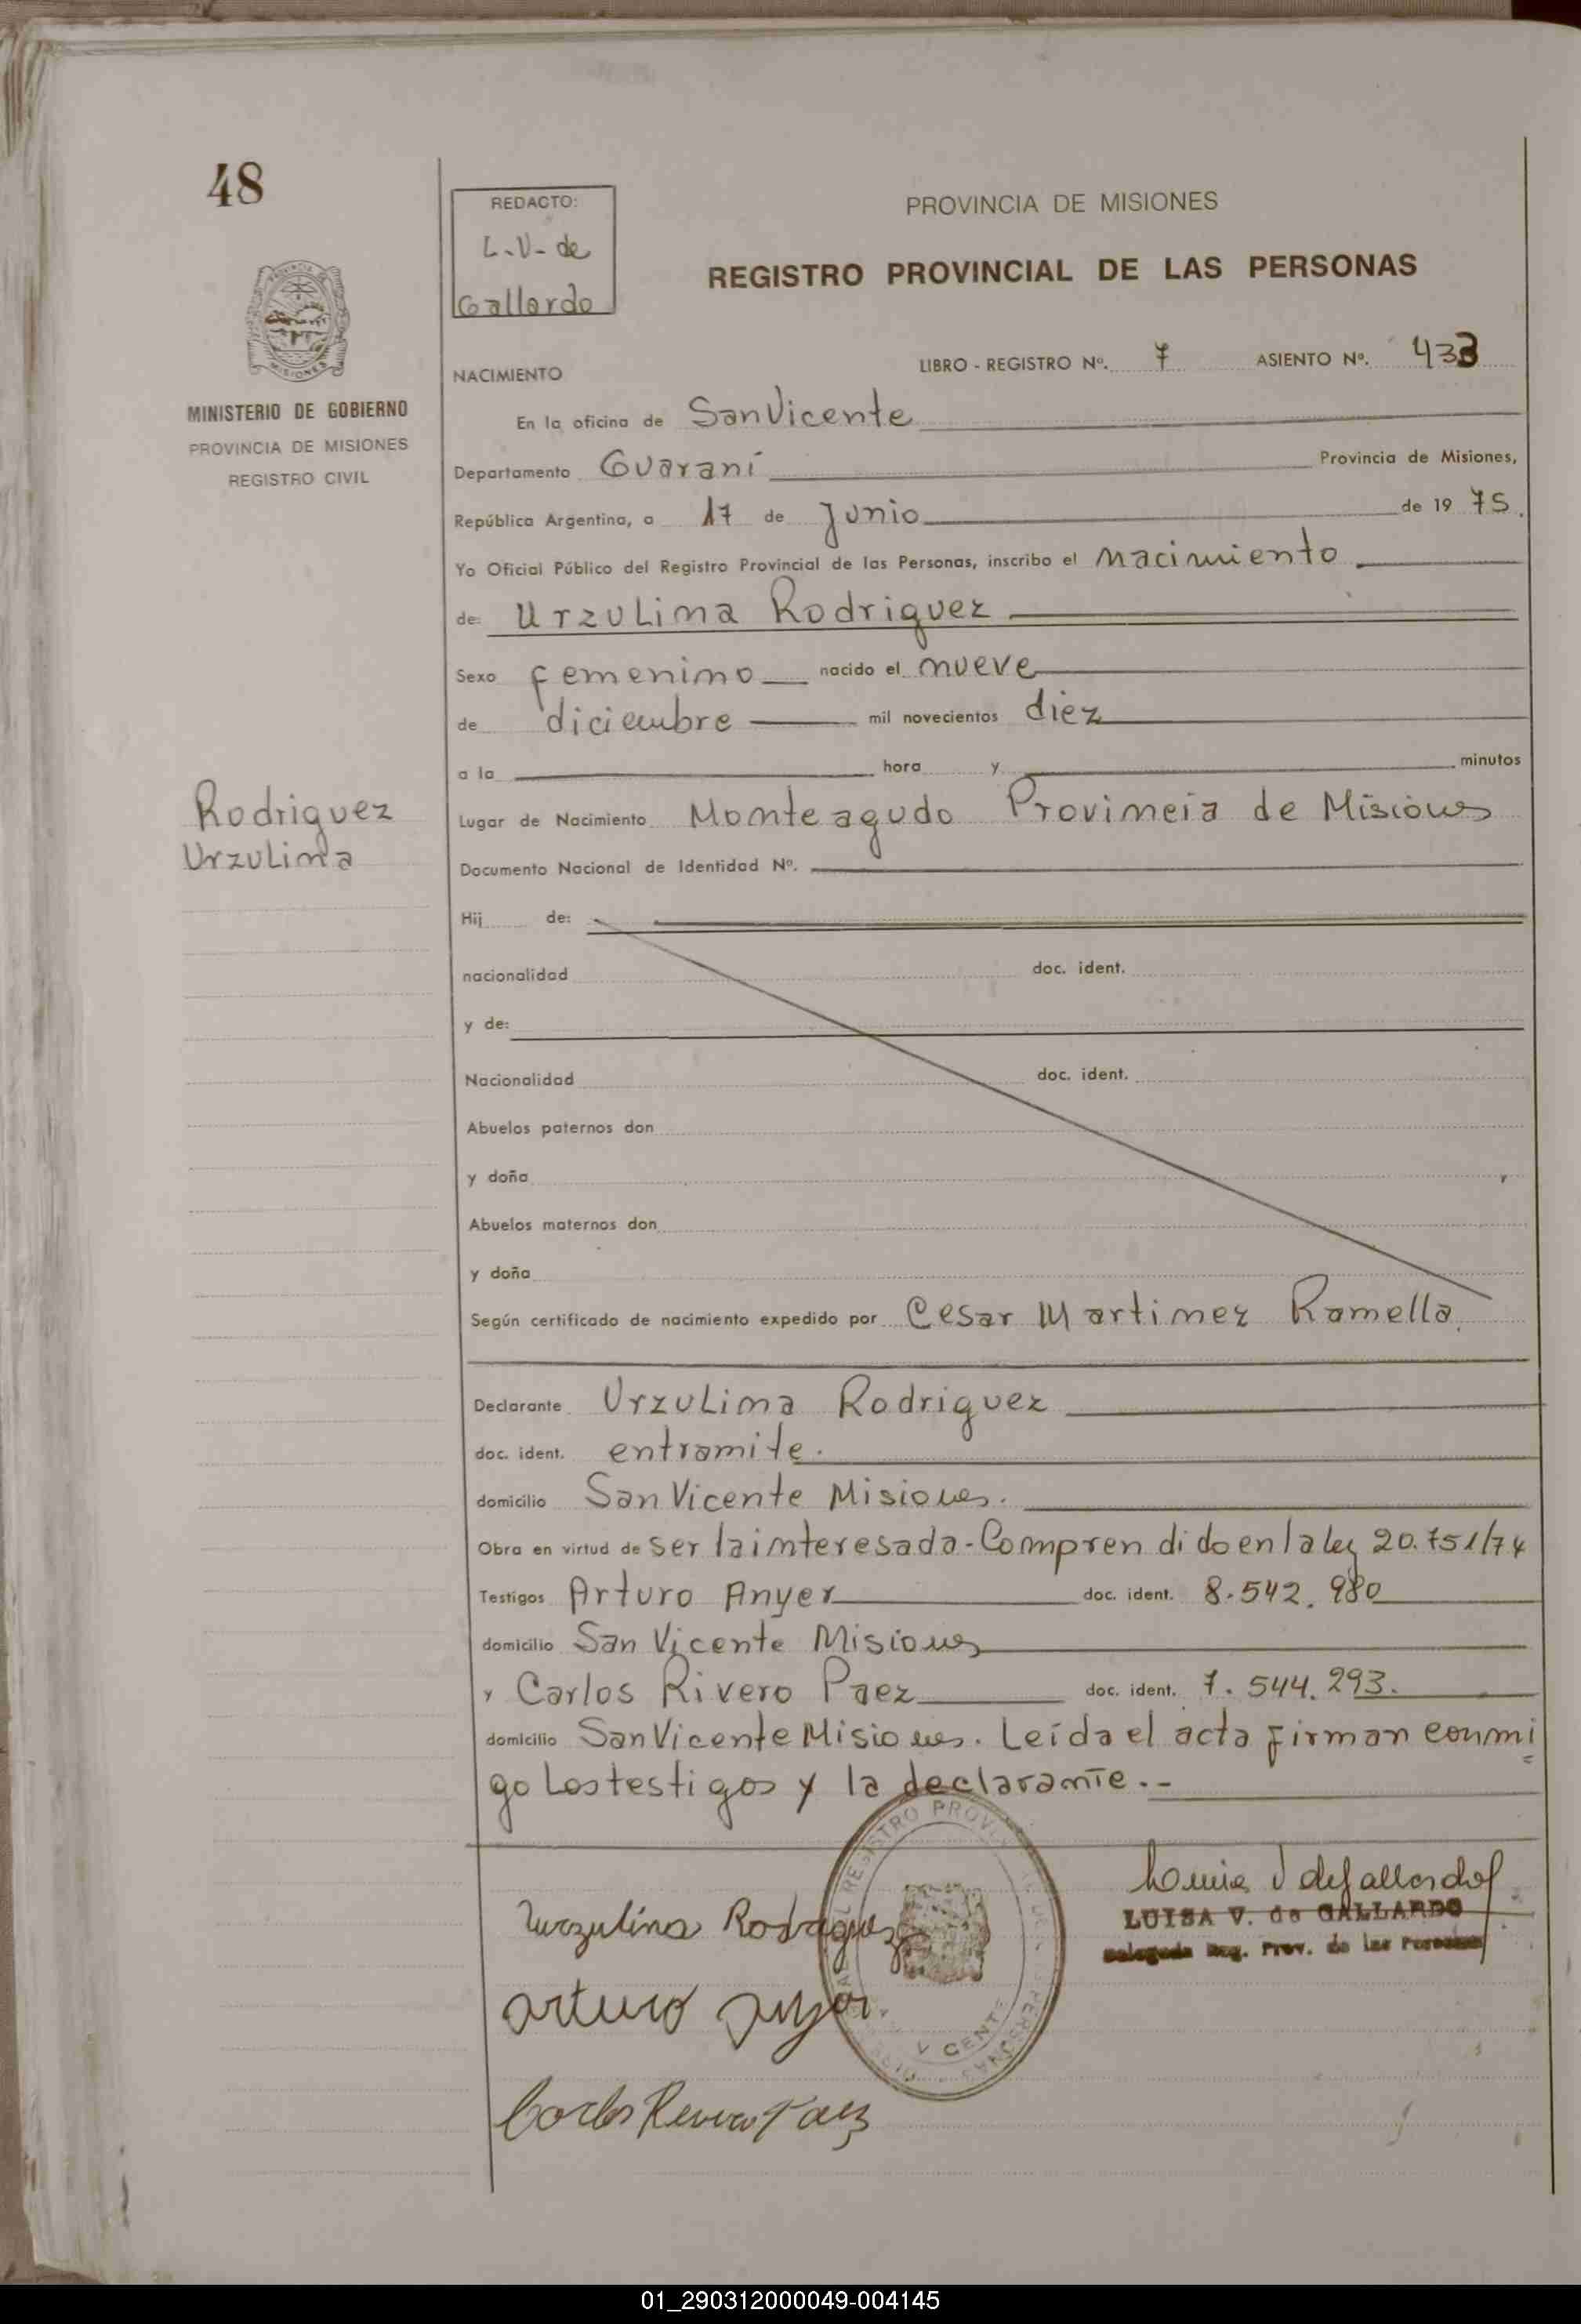 48
REDACTO:
L.V. de
Gallardo
PROVINCIA DE MISIONES
REGISTRO PROVINCIAL DE LAS PERSONAS
MISIONES
MINISTERIO DE GOBIERNO
PROVINCIA DE MISIONES
REGISTRO CIVIL
NACIMIENTO LIBRO - REGISTRO Nº. 7 ASIENTO Nº. 433
En la oficina de San Vicente
Departamento Guaraní Provincia de Misiones,
República Argentina, a 17 de Junio de 19 75.
Yo Oficial Público del Registro Provincial de las Personas, inscribo el nacimiento
de: Urzulina Rodriguez
Sexo femenino nacido el nueve
de diciembre mil novecientos diez
a la hora y minutos
Rodriguez
Urzulina
Lugar de Nacimiento Monteagudo Provincia de Misiones
Documento Nacional de Identidad Nº.
Hij de:
nacionalidad doc. ident.
y de:
Nacionalidad doc. ident.
Abuelos paternos don
y doña
Abuelos maternos don
y doña
Según certificado de nacimiento expedido por Cesar Martinez Ramella.
Declarante Urzulina Rodriguez
doc. ident. en tramite.
domicilio San Vicente Misiones.
Obra en virtud de ser la interesada - Comprendido en la ley 20.751/74
Testigos Arturo Anyer doc. ident. 8.542.980
domicilio San Vicente Misiones
y Carlos Rivero Paez doc. ident. 7.544.293.
domicilio San Vicente Misiones. Leída el acta firman conmi
go Los testigos y la declarante.-
Luisa V de Gallardo
LUISA V. de GALLARDO
Delegada Reg. Prov. de las Personas
Urzulina Rodriguez
arturo
Carlos Rivero Paez
01_290312000049-004145